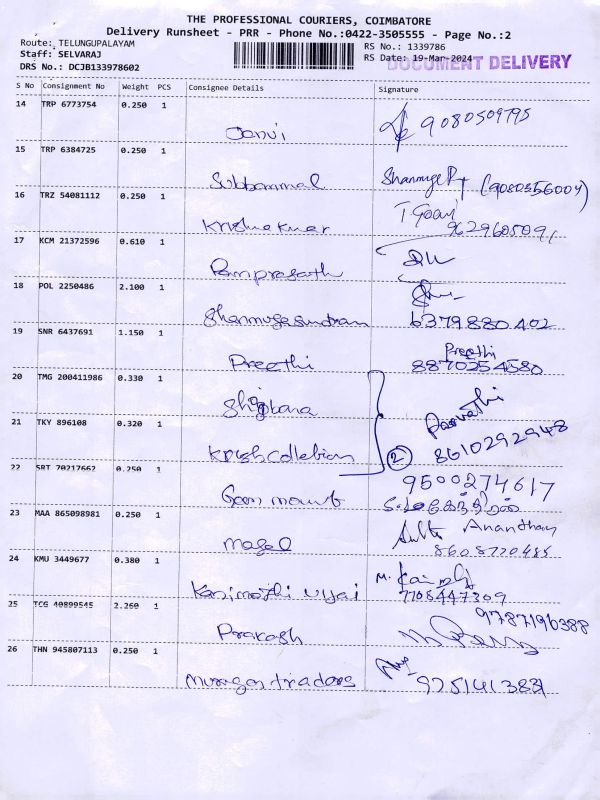 THE PROFESSIONAL COURIERS, COIMBATORE
Delivery Runsheet - PRR - Phone No.:0422-3505555 - Page No.:2
Route: TELUNGUPALAYAM
Staff: SELVARAJ
DRS No.: DCJB133978602
RS No.: 1339786
RS Date: 19-Mar-2024
DOCUMENT DELIVERY
S No Consignment No Weight PCS Consignee Details Signature
14 TRP 6773754 0.250 1
Janvi 9080509795
15 TRP 6384725 0.250 1
Subbammal (9080356004)
16 TRZ 54081112 0.250 1
T Gowri
Krishnakumar 9629605091
17 KCM 21372596 0.610 1
Ramprasath
18 POL 2250486 2.100 1
Shanmugasundram 6379880402
19 SNR 6437691 1.150 1
Preethi
Preethi 8870254580
20 TMG 200411986 0.330 1
Parvathi
21 TKY 896108 0.320 1
Krish collection 2 8610292948
22 SRT 70217662 0.250 1
9500274617
23 MAA 865098981 0.250 1
Anandhan
Magal 8608720485
24 KMU 3449677 0.380 1
Kanimozhi Vijai 7708447309
25 TCG 40899545 2.260 1
9787196388
Prakash
26 THN 945807113 0.250 1
Murugan traders 9751413831